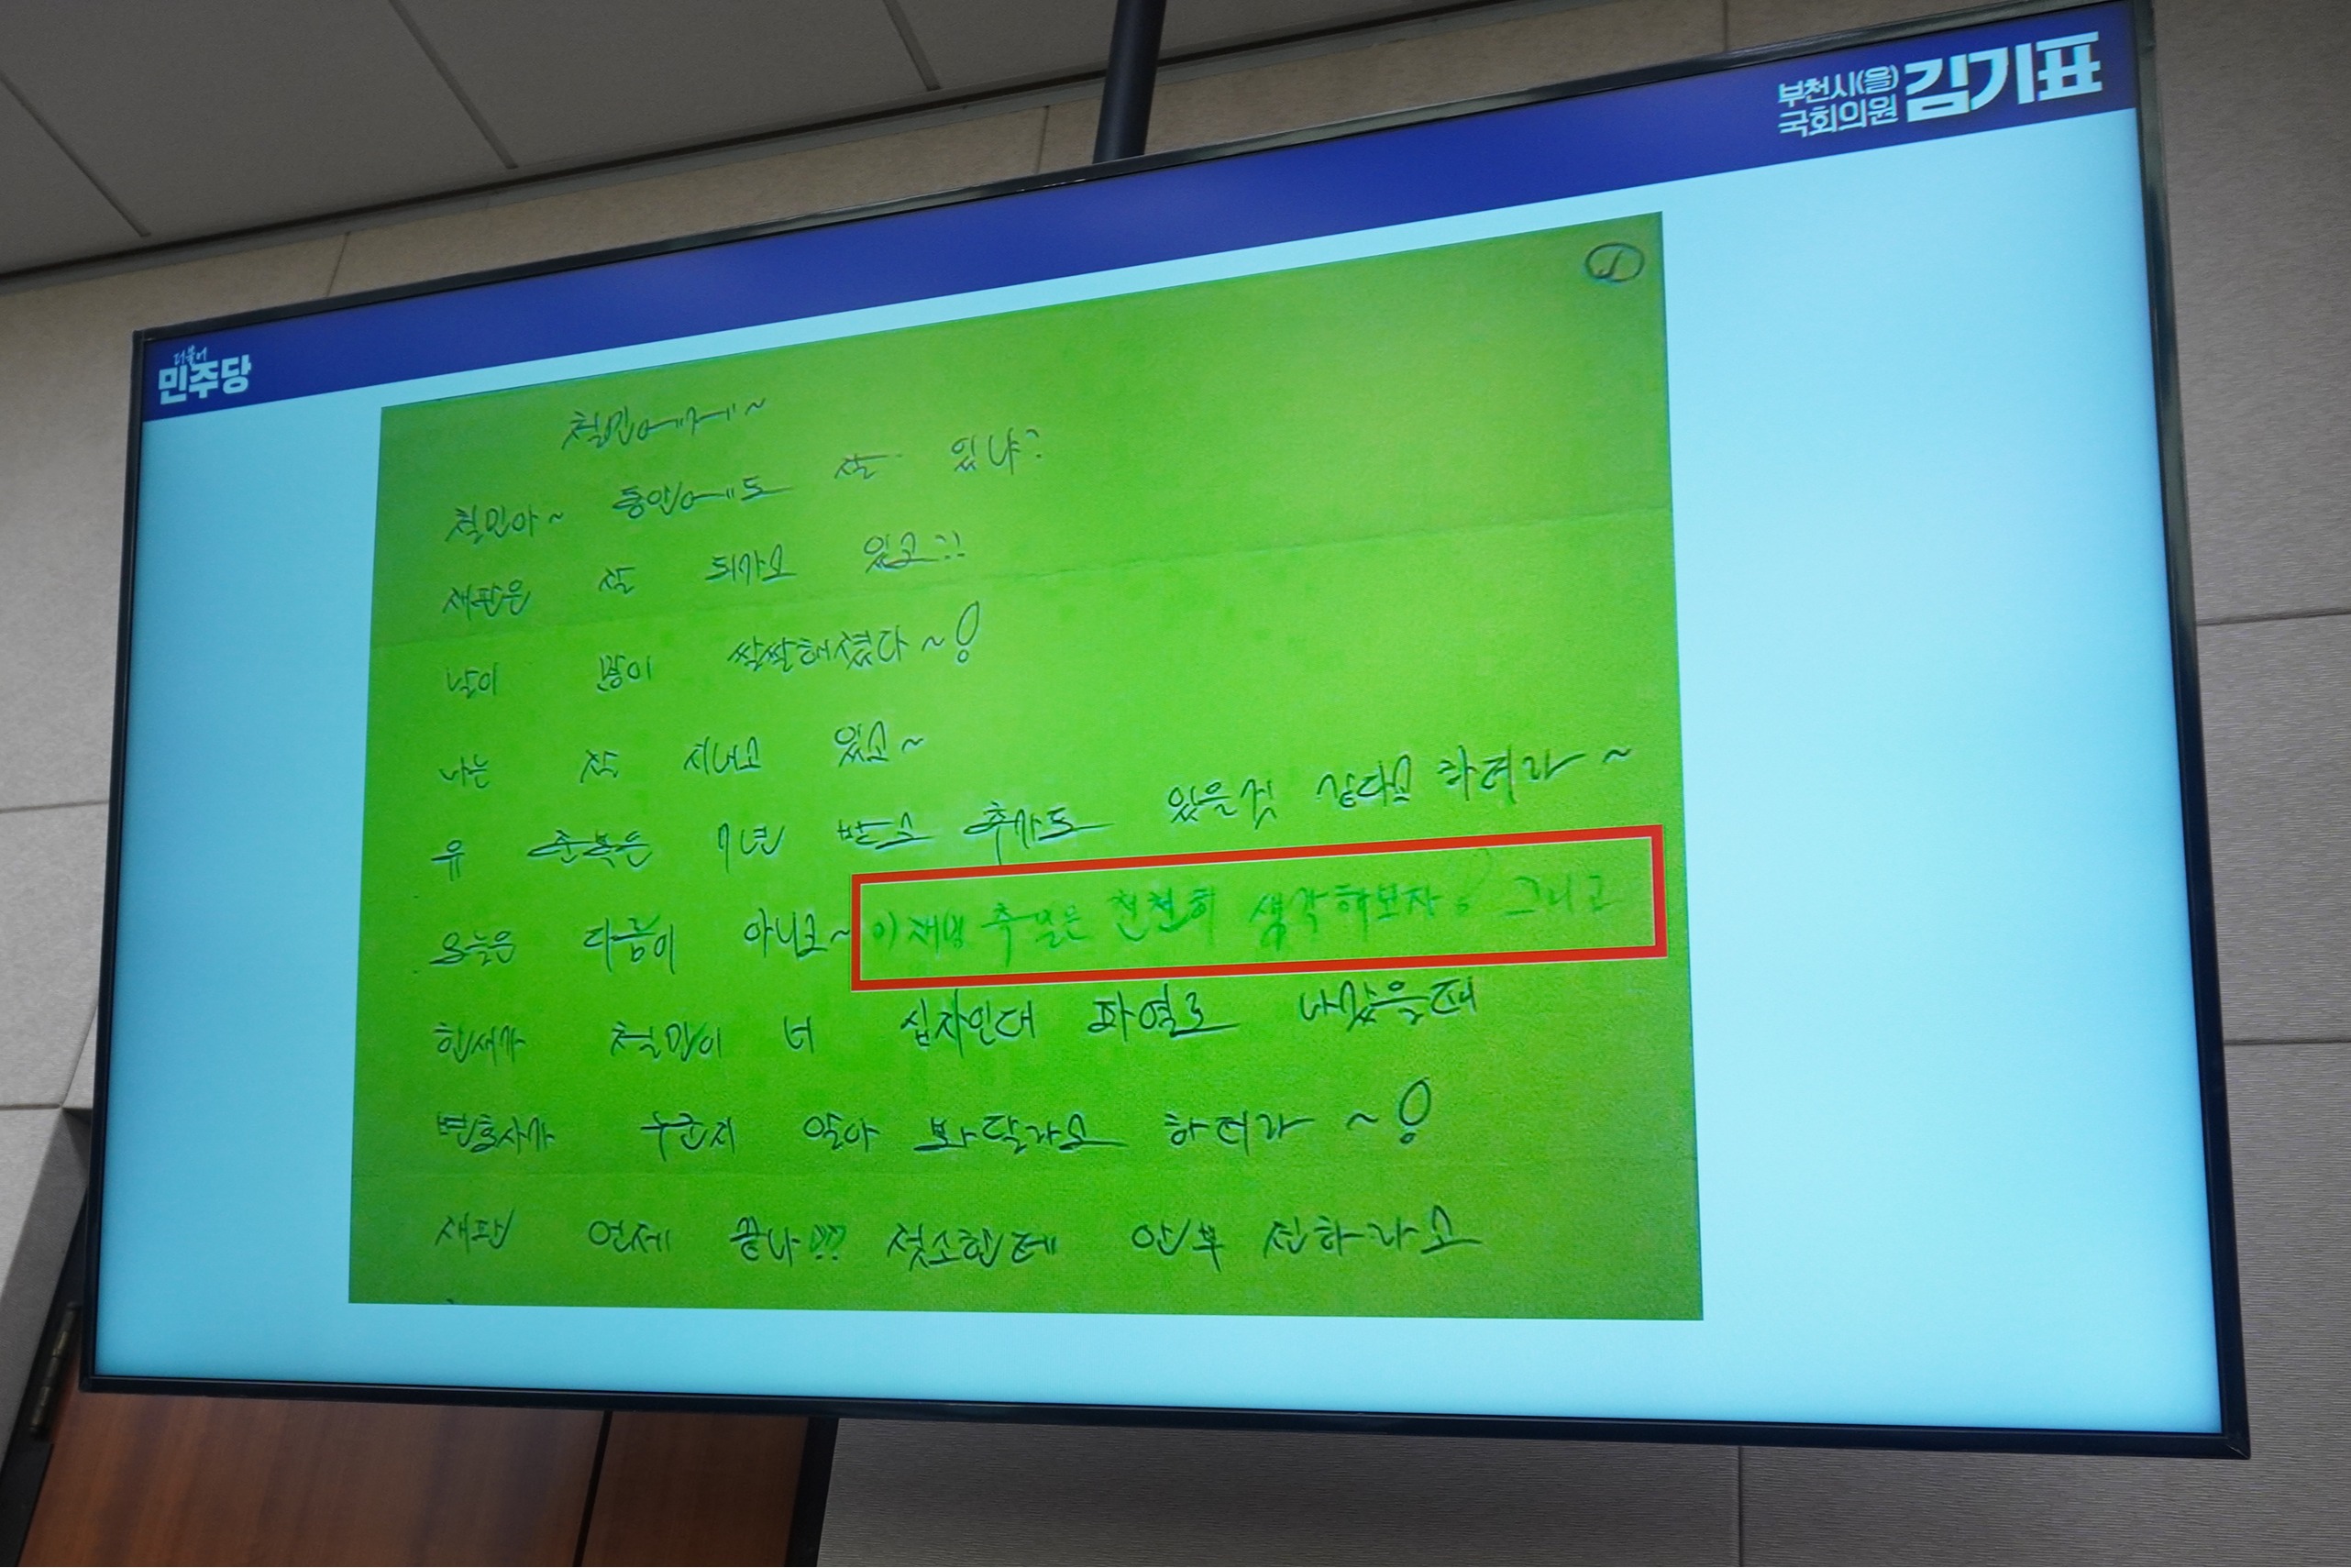 부천시(을)
국회의원 김기표
더불어
민주당
①
철민에게~
철민아~ 동안에도 잘 있냐?
재판은 잘 되가고 있고!!
날이 많이 쌀쌀해졌다~!
나는 잘 지내고 있고~
유 준복은 7년 받고 추가도 있을것 같다고 하더라~
오늘은 다름이 아니고~ 이재명 추얼은 천천히 생각해보자? 그리고
한새가 철민이 너 십자인대 파열로 나갔을때
변호사가 누군지 알아 봐달라고 하더라~!
재판 언제 끝나?? 젓소한테 안부 전하라고